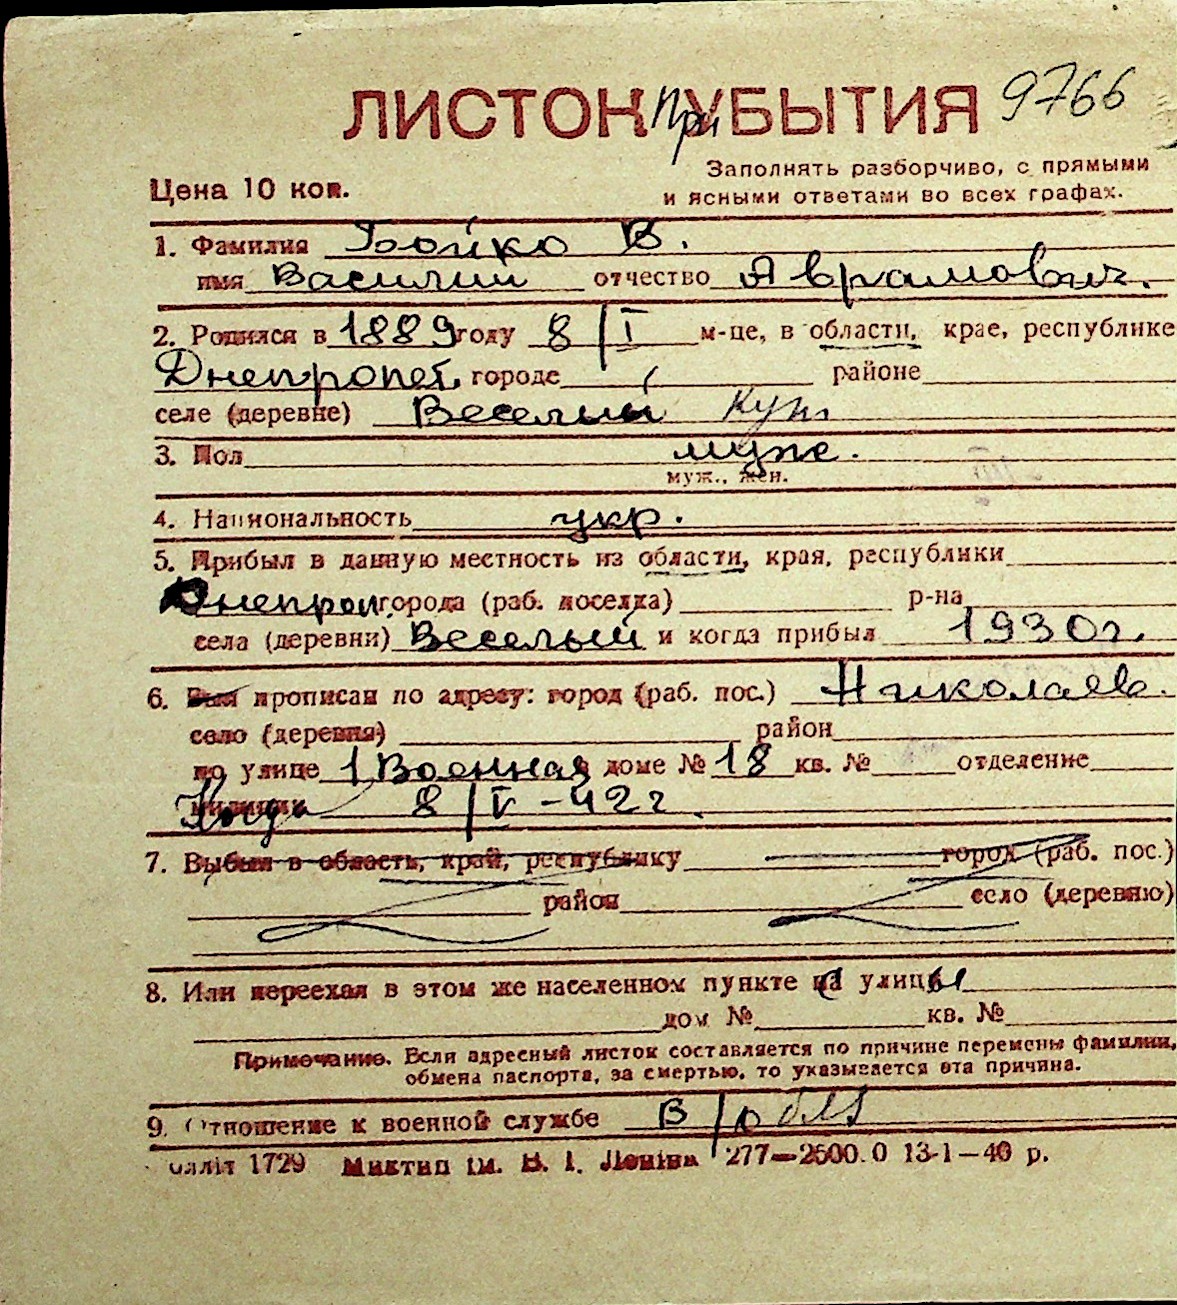 ЛИСТОК При УБЫТИЯ 9766
Заполнять разборчиво, с прямыми
Цена 10 коп. и ясными ответами во всех графах.
1. Фамилия Бойко В.
имя Василий отчество Аврамович.
2. Родился в 1889 году 8/I м-це, в области, крае, республике
Днепропет. городе районе
селе (деревне) Веселый Кут
3. Пол муже.
муж., жен.
4. Национальность укр.
5. Прибыл в данную местность из области, края, республики
Днепроп. города (раб. поселка) р-на
села (деревни) Веселый и когда прибыл 1930г.
6. Был прописан по адресу: город (раб. пос.) Николаев.
село (деревня) район
по улице 1 Военная доме № 18 кв. № отделение
милиции Когда 8/V-42г.
7. Выбыл в область, край, республику город (раб. пос.)
район село (деревню)
8. Или переехал в этом же населенном пункте с улицы
дом № кв. №
Примечание. Если адресный листок составляется по причине перемены фамилии,
обмена паспорта, за смертью, то указывается эта причина.
9. Отношение к военной службе в/обяз
1729 Миктип ім. В. І. Леніна 277—2500.0 13-1—40 р.